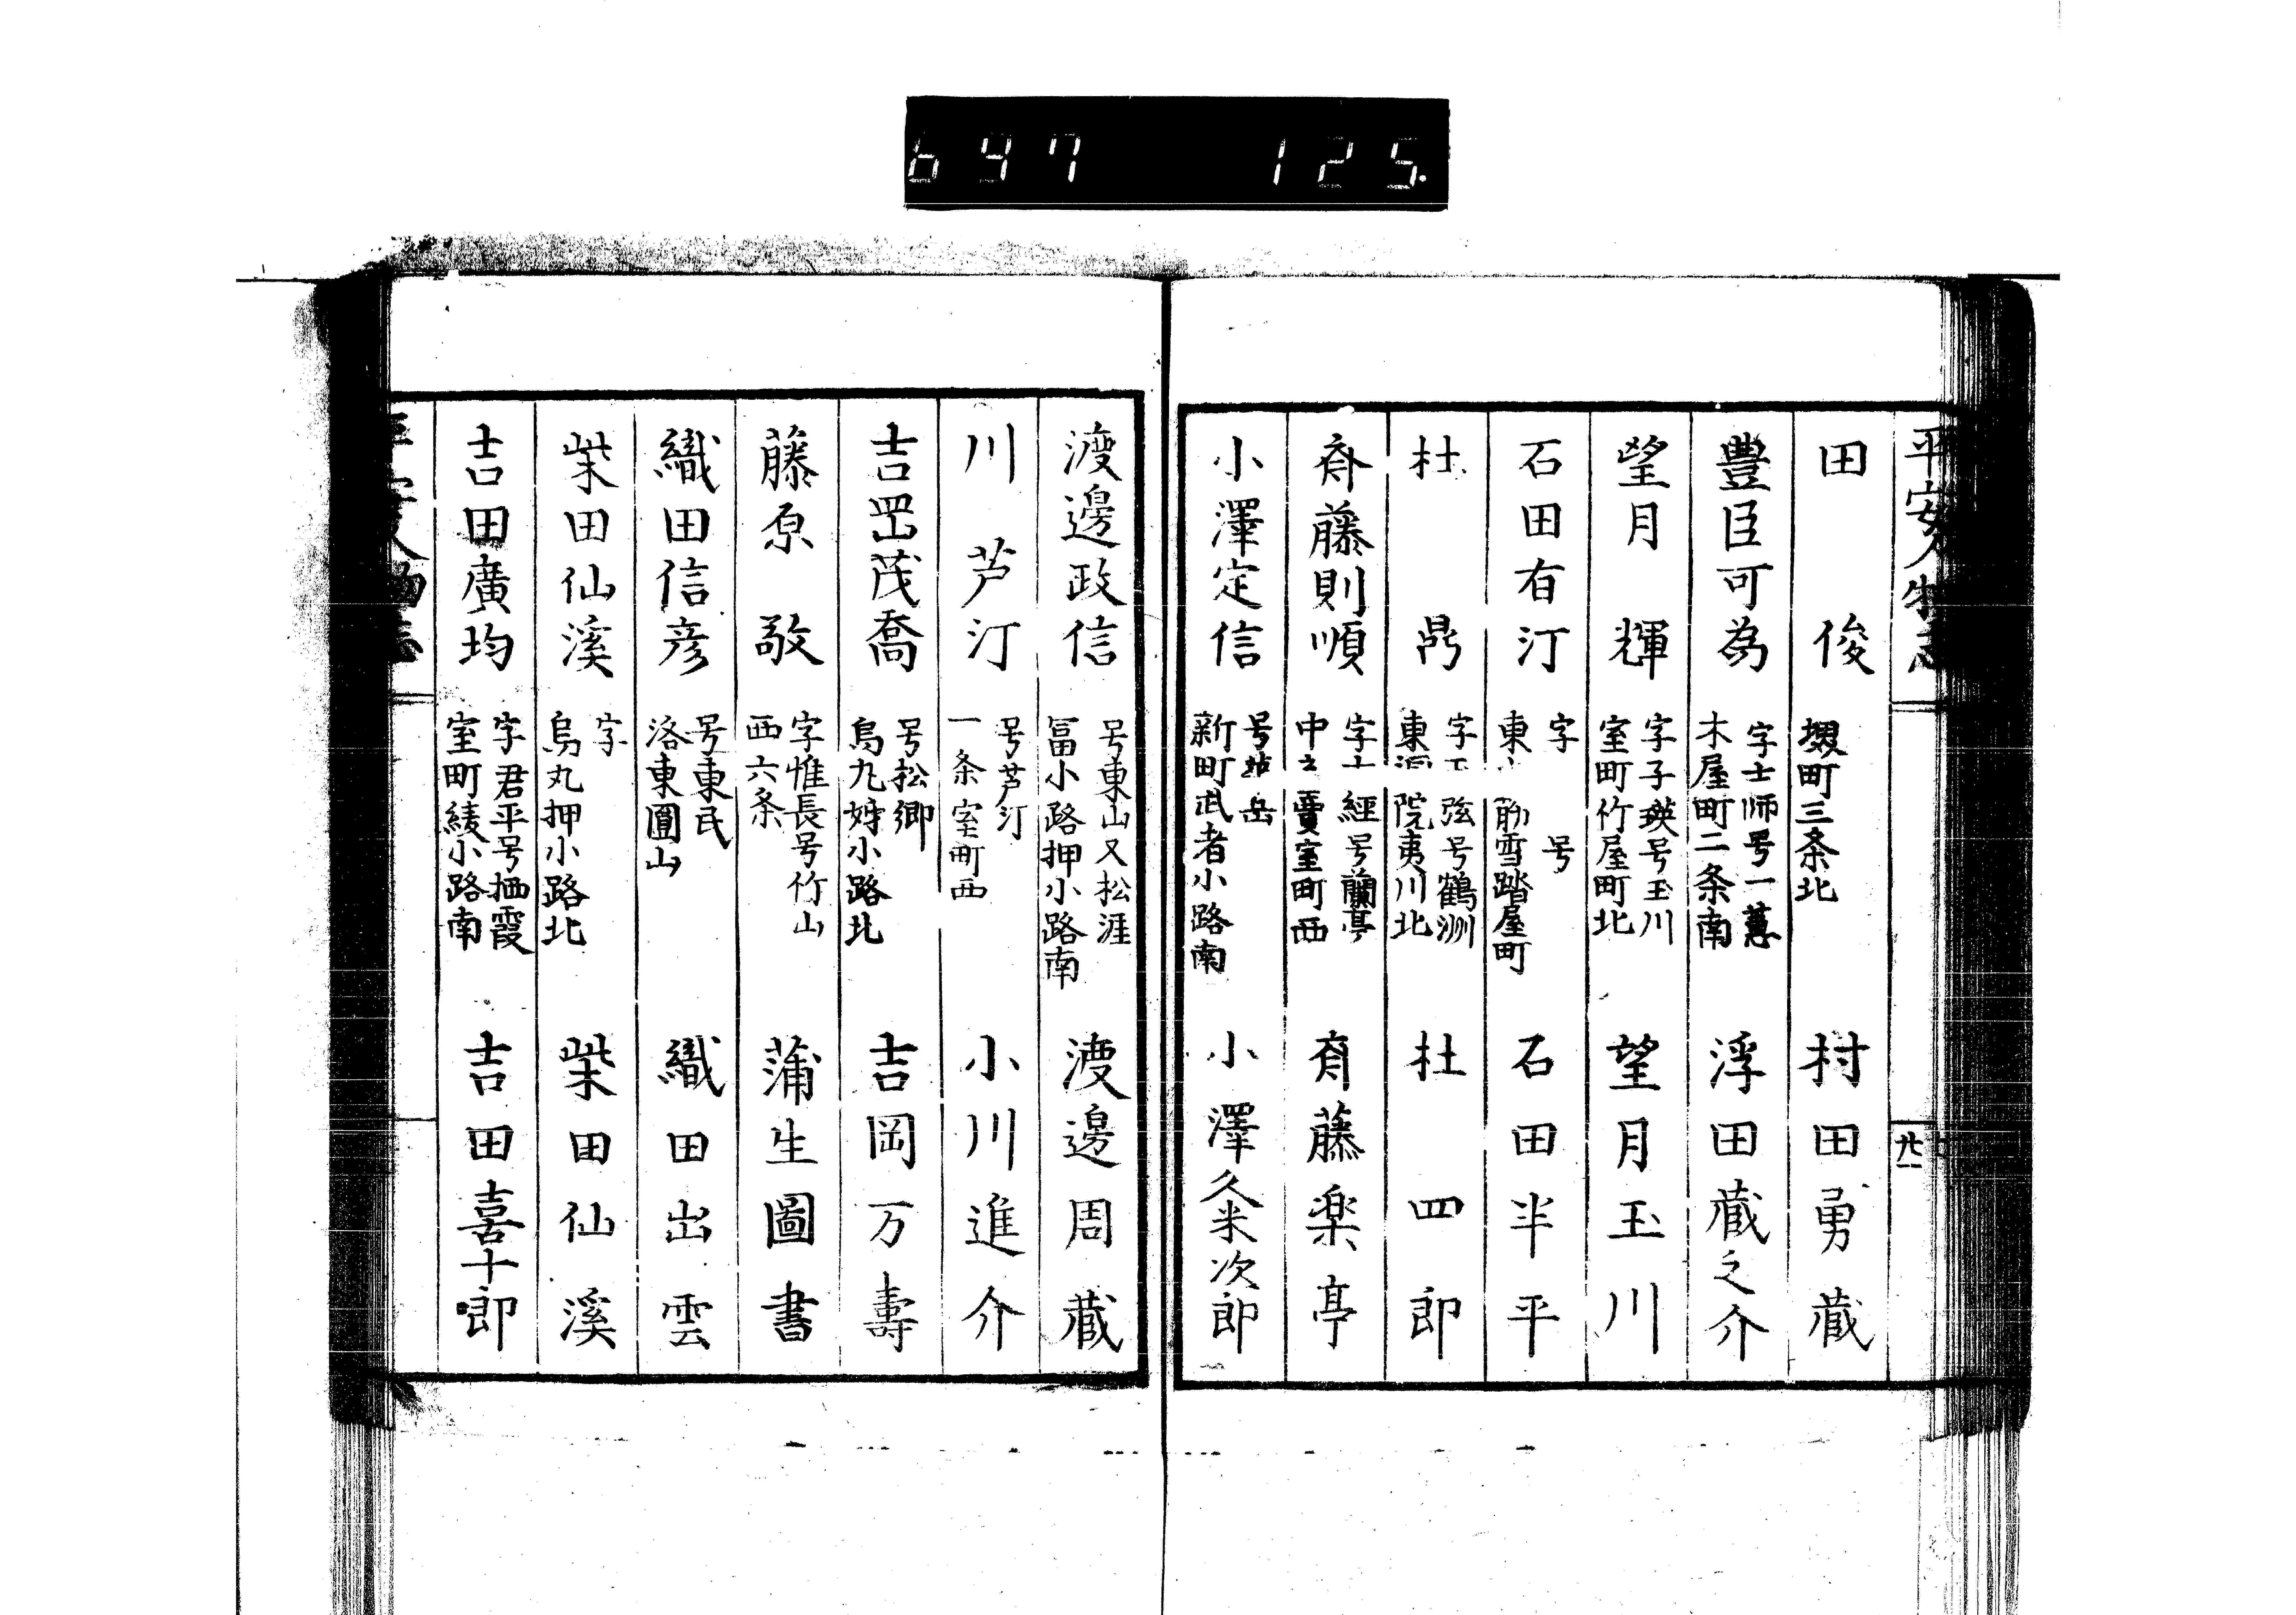 647 125
平安人物志
廿一
田俊
堺町三条北
村田勇蔵
豊臣可為
字士师号一蕙
木屋町二条南
浮田蔵之介
望月輝
字子瑛号玉川
室町竹屋町北
望月玉川
石田有汀
字 号
東 雪踏屋町
石田半平
杜鼎
字 弦号鶴洲
東洞院夷川北
杜四郎
斎藤則順
字 經号蘭亭
中立賣室町西
斎藤楽亭
小澤定信
号 岳
新町武者小路南
小澤久米次郎
渡邊政信
号東山又松涯
冨小路押小路南
渡邊周蔵
川芦汀
号芦汀
一条室町西
小川進介
吉罡茂喬
号松卿
烏丸姉小路北
吉岡万壽
藤原敬
字惟長号竹山
西六条
蒲生圖書
織田信彦
号東民
洛東圓山
織田出雲
柴田仙溪
字
烏丸押小路北
柴田仙溪
吉田廣均
字君平号栖霞
室町綾小路南
吉田喜十郎